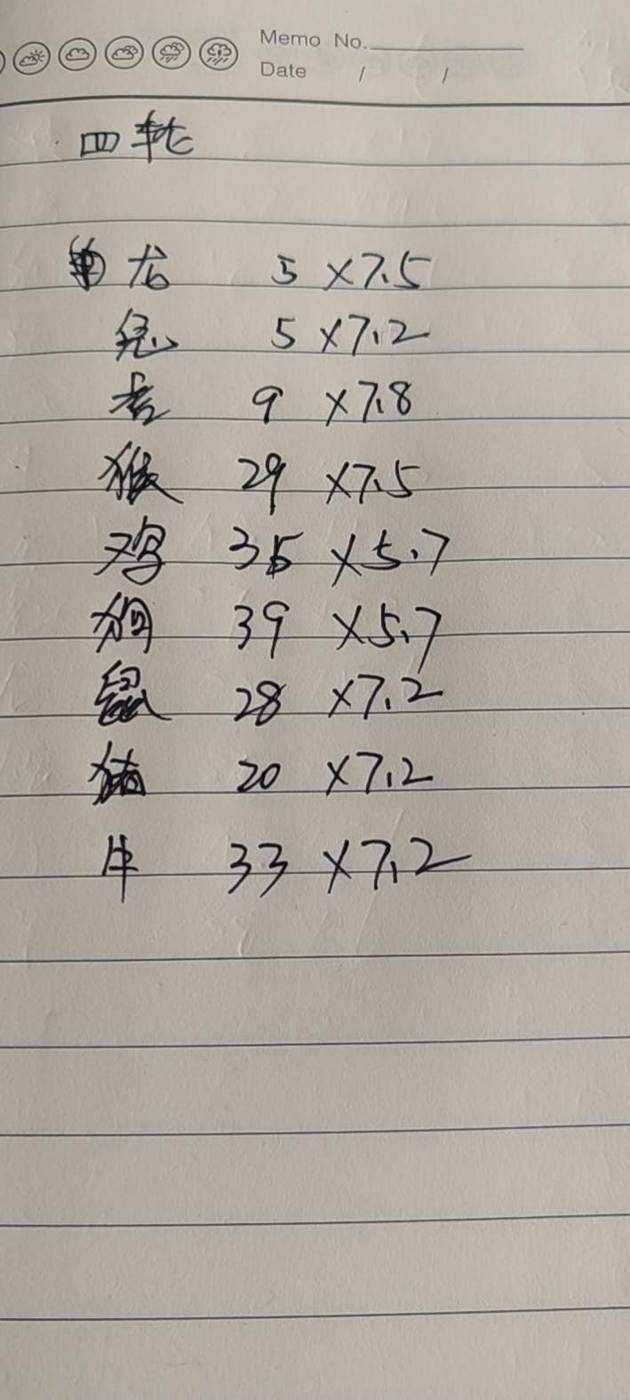 Memo No.
Date / /
四轮
龙 5 ×7.5
兔 5 ×7.2
虎 9 ×7.8
猴 29 ×7.5
鸡 35 ×5.7
狗 39 ×5.7
鼠 28 ×7.2
猪 20 ×7.2
牛 33 ×7.2